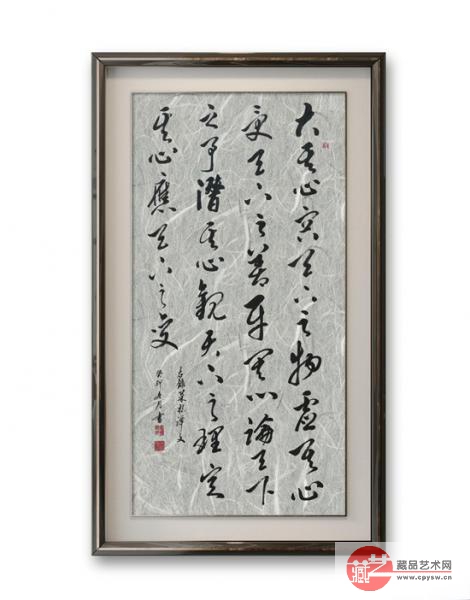 大其心容天下之物虚其心
受天下之善平其心論天下
之事潛其心觀天下之理定
其心應天下之變
錄菜根譚文
癸卯 月書
藏艺
藏品艺术网
www.cpysw.cn